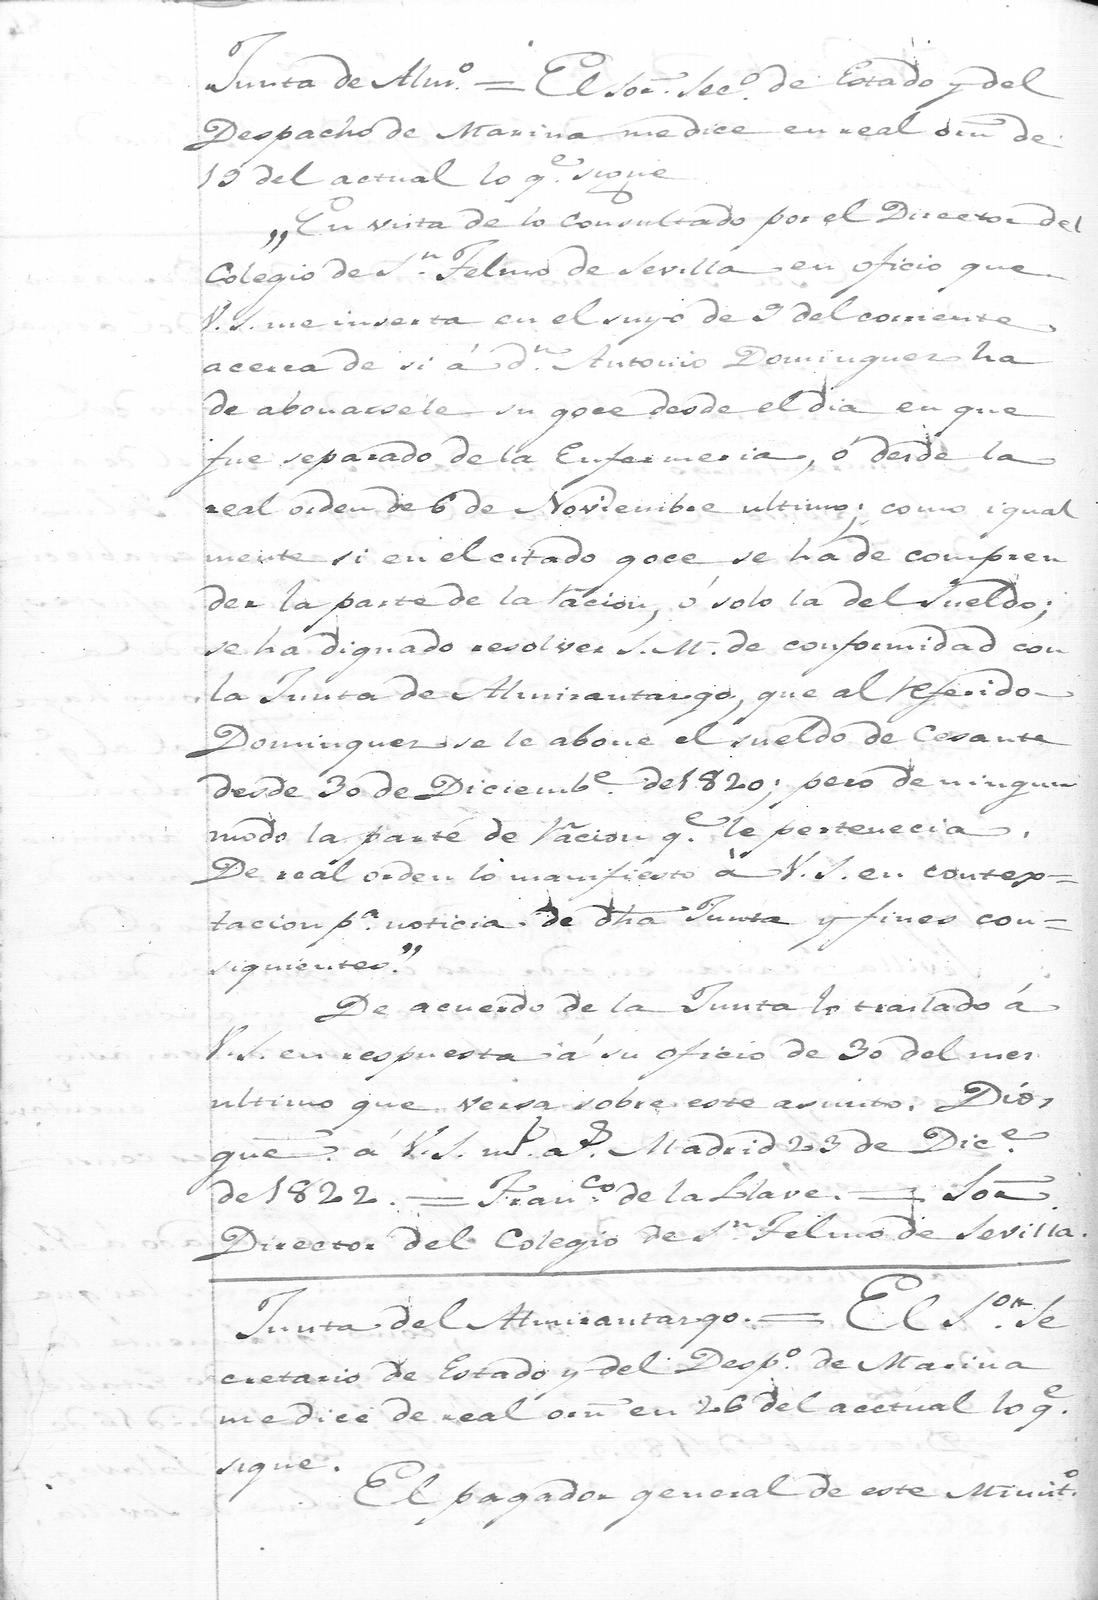 Junta de Almº. = El Sor. Secº. de Estado y del
Despacho de Marina me dice en real orñ de
19 del actual lo q.e sigue
„En vista de lo consultado por el Director del
Colegio de S.n Telmo de Sevilla en oficio que
V. S. me inserta en el suyo de 9 del corriente
acerca de si á d.n Antonio Dominguez ha
de abonarsele su goce desde el dia en que
fue separado de la Enfermeria, ó desde la
real orden de 6 de Noviembre ultimo; como igual
mente si en el citado goce se ha de compren
der la parte de la Racion, ó solo la del Sueldo;
se ha dignado resolver S. M. de conformidad con
la Junta de Almirantazgo, que al referido
Dominguez se le abone el sueldo de Cesante
desde 30 de Diciemb.e de 1820; pero de ningun
modo la parte de Racion q.e le pertenecia.
De real orden lo manifiesto à V. S. en contex=
tacion p.a noticia de dha Junta y fines con=
siguientes.”
De acuerdo de la Junta lo traslado á
V. S. en respuesta á su oficio de 30 del mes
ultimo que versa sobre este asunto. Dios
gue. á V. S. m.s a.s Madrid 23 de Dic.e
de 1822. = Fran.co de la Llave. = Sor.
Director del Colegio de S.n Telmo de Sevilla.
Junta del Almirantazgo. = El S.or Se
cretario de Estado y del Desp.o de Marina
me dice de real orñ en 26 del acctual lo q.e
sigue.
El pagador general de este Minist.o